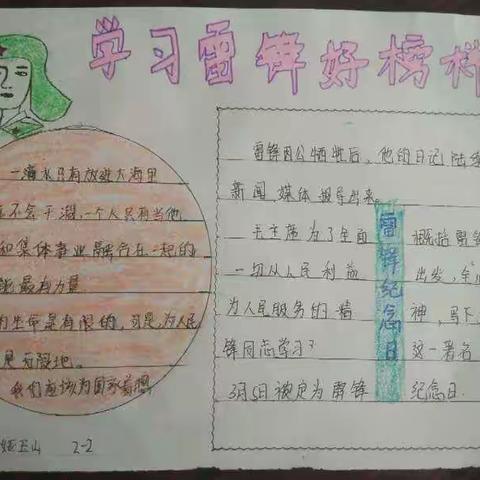 学习雷锋好榜样
一滴水只有放进大海里
不会干涸，一个人只有当他
和集体事业融合在一起的
能最有力量
生命是有限的，可是，为人民
是无限地。
我们应该为国家着想
玉山 2-2
雷锋因公牺牲后，他的日记陆续
新闻媒体报导出来。
毛主席为了全面概括雷锋
一切从人民利益出发，全
为人民服务的精神，写下
锋同志学习？这一著名
3月5日被定为雷锋纪念日.
雷锋纪念日